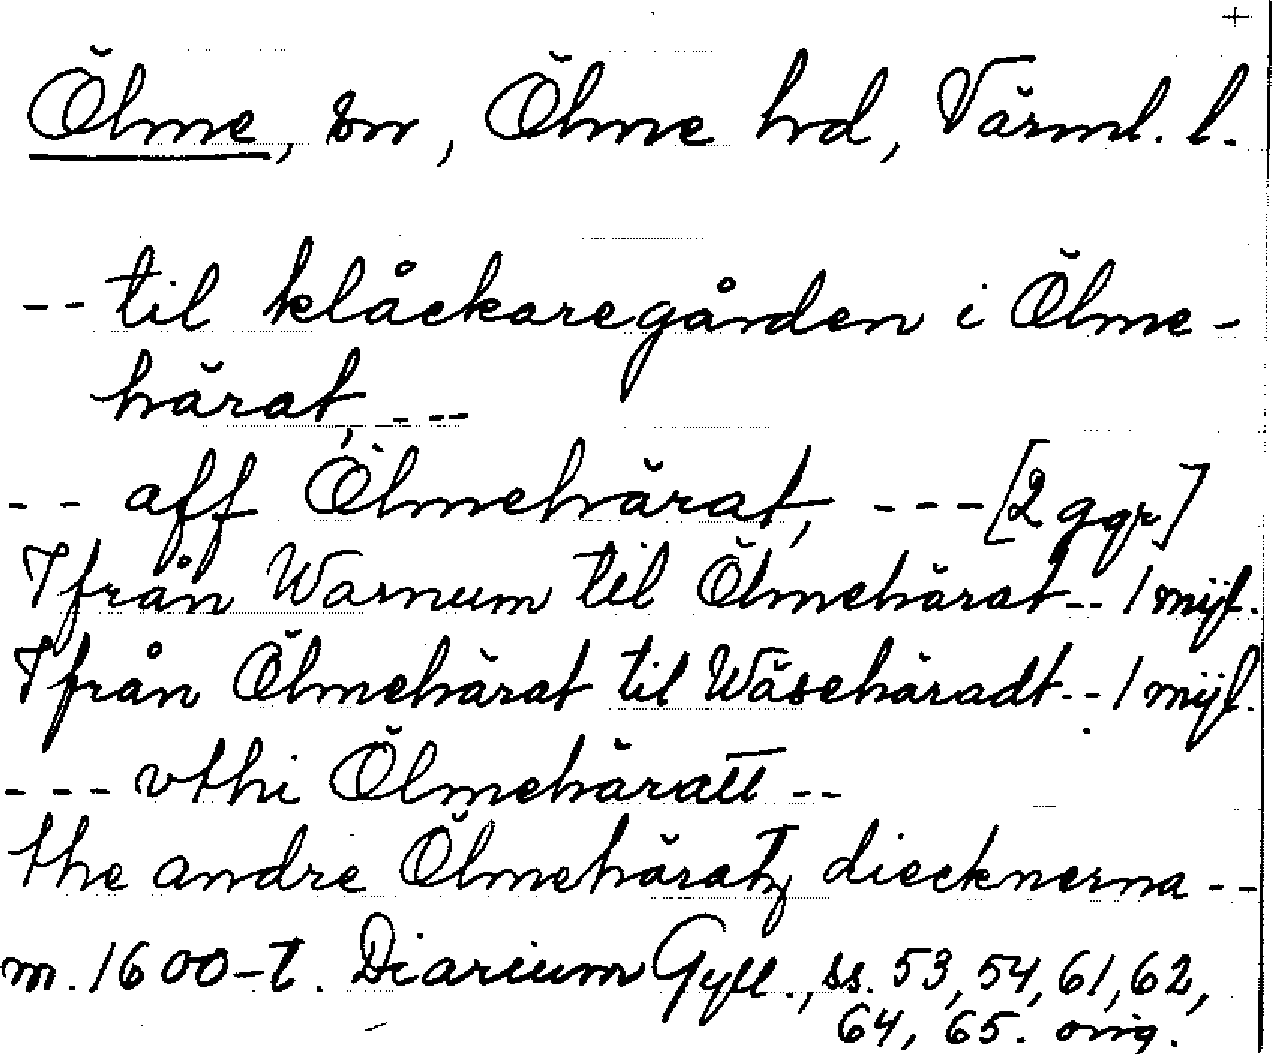 +
Ölme, sn, Ölme hd, Värml. l.
-- til klåckaregården i Ölme-
härat, ---
-- aff Ölmehärat, --- [2 ggr]
Ifrån Warnum til Ölmehärat -- 1 mijl.
Ifrån Ölmehärat til Wäsehäradt -- 1 mijl.
--- vthi Ölmehäratt --
the andre Ölmehäratz diecknerna --
m. 1600-t. Diarium Gyll., ss. 53, 54, 61, 62,
64, 65. orig.